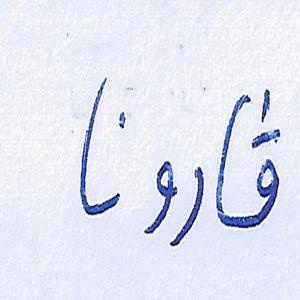 قارونا